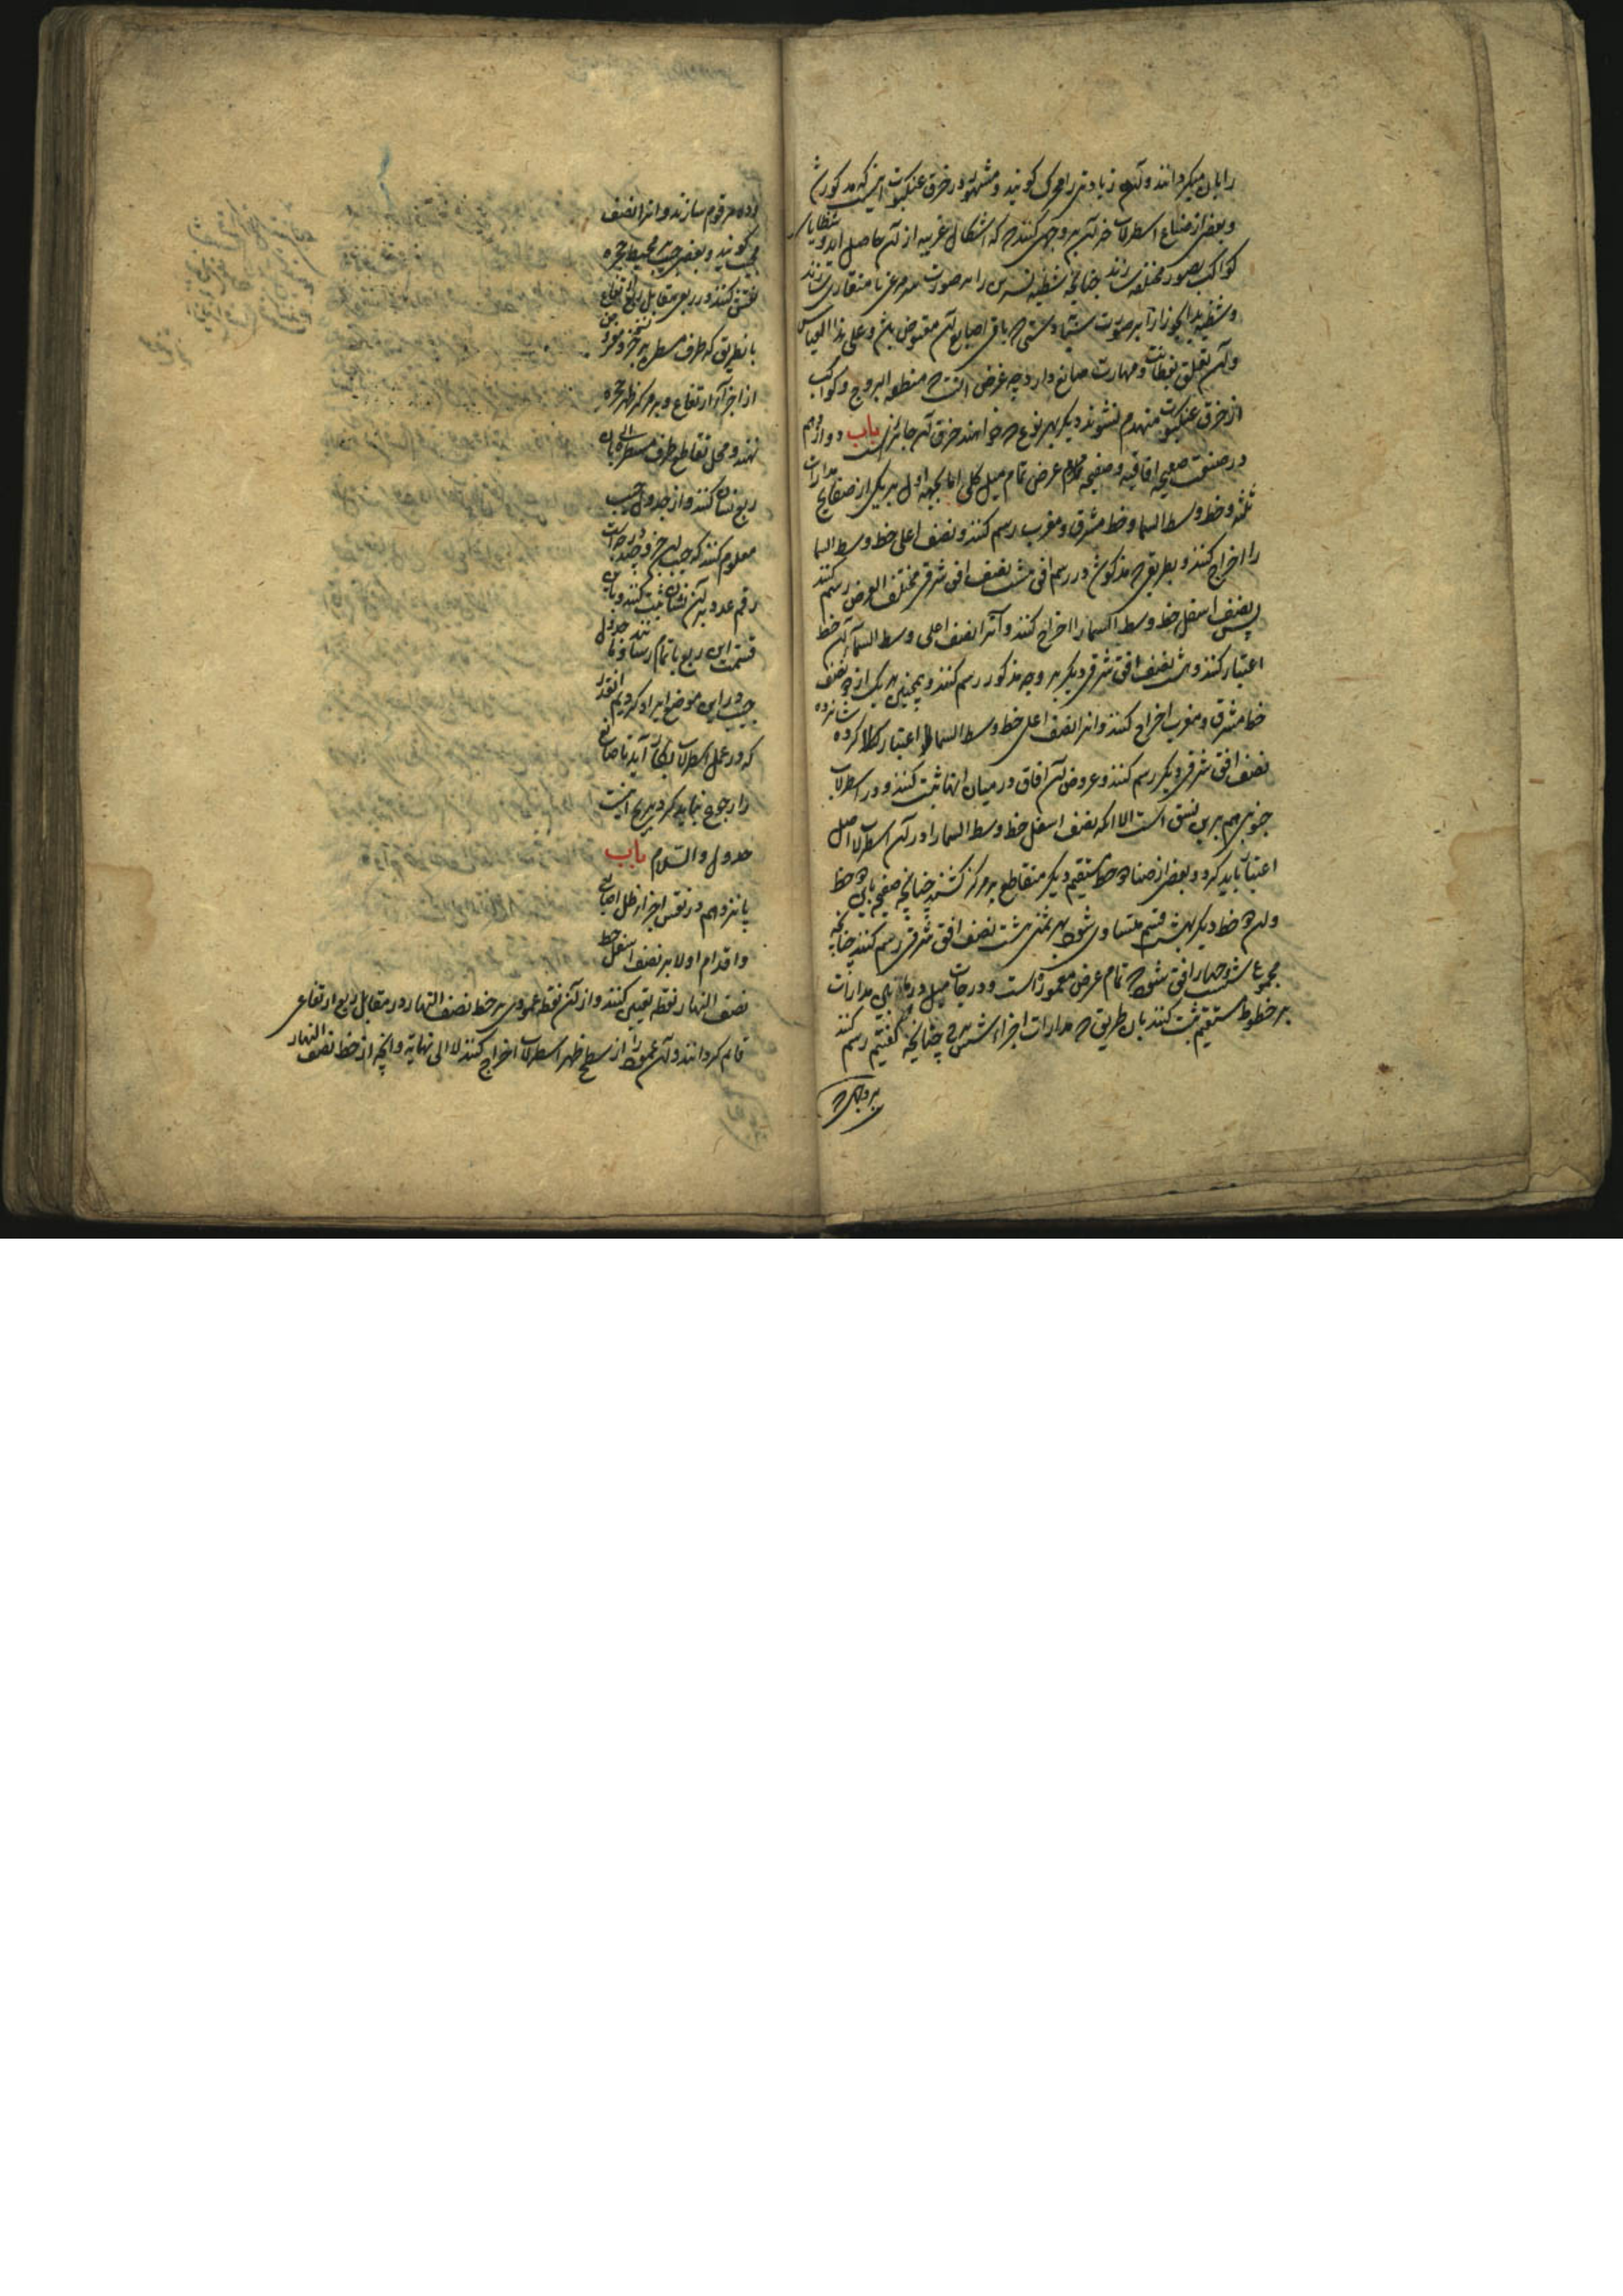 را بان میگردانند و آن زیادتی را محرک گویند و مشهور در خرق عنکبوت اینست که مذکور شد
و بعضی از صناع اسطرلاب خرق آن بر وجهی کنند که اشکال غریبه از آن حاصل آید و شظایا
کواکب بصور مختلفه سازند چنانچه شظیه نسرین را بر صورت سر مرغی با منقاری سازند
و شظیه ید الجوزا را بر صورت سبابه دستی که باقی اصابع آن مقبوض باشد و علی هذا القیاس
و آن تعلق بفطانت و مهارت صانع دارد چه غرض آنست که منطقه البروج و کواکب
از خرق عنکبوت منهدم نشوند دیگر بهر نوع که خواهند خرق آن جائز است باب دوازدهم
در صنعت صفیحه آفاقیه و صفیحه عرض تمام میل کلی اما بجهة اول بر یکی از صفایح مدارات
ثلثه و خط وسط السما و خط مشرق و مغرب رسم کنند و نصف اعلی خط وسط السما
را اخراج کنند و بطریق که مذکور شد در رسم افق هشت نصف افق شرقی مختلف العرض رسم کنند
پس نصف اسفل خط وسط السما را اخراج کنند و آنرا نصف اعلی وسط السما آن خط
اعتبار کنند و هشت نصف افق شرقی دیگر بر وجه مذکور رسم کنند و همچنین هر یک از دو نصف
خط مشرق و مغرب اخراج کنند و آنرا نصف اعلی خط وسط السما اعتبار کرده شانزده
نصف افق شرقی دیگر رسم کنند و عروض آن آفاق در میان آنها ثبت کنند و در اسطرلاب
جنوبی هم برین نسق است الا آنکه نصف اسفل خط وسط السما را در آن اسطرلاب اصل
اعتبار باید کرد و بعضی از صناع دو خط مستقیم دیگر متقاطع بر مرکز کشند چنانچه صفیحه باین دو خط
و آن دو خط دیگر بهشت قسم متساوی شود بهر ثمنی هشت نصف افق شرقی رسم کنند چنانچه
مجموع شصت و چهار افق شود که تمام عرض معموره است و درجات میل در میان مدارات
بر خطوط مستقیم ثبت کنند بان طریق که مدارات اجزاء شمس چنانچه گفتیم رسم کنند
بر وجهی که
رده مرقوم سازند و آنرا نصف
مجیب گویند و بعضی جیب محیط حجره
نقش کنند در ربع مقابل ربع ارتفاع
بانطریق که طرف مسطره بر جزو جزو
از اجزآء ارتفاع و بر مرکز ظهر حجره
نهند و محل تقاطع طرف مسطره بان
ربع نشان کنند و از جدول جیب
معلوم کنند که جیب آن جزو چند درجه است
رقم عدد بر آن نشان ثبت کنند و باین
قسمت این ربع باتمام رسانند و جدول
جیب در این موضع ایراد کردیم آنقدر
که در عمل اسطرلاب بکار آید تا صانع
را رجوع نباید کرد بزیج اینست
جدول والسلام باب
پانزدهم در نقش اجزاء ظل اصابع
و اقدام اولا بر نصف اسفل خط
نصف النهار نقطه تعیین کنند و از آن نقطه عمودی بر خط نصف النهار در مقابل ربع ارتفاع
قایم گردانند و آن عمود را از سطح ظهر اسطرلاب اخراج کنند لا الی نهایة و آنچه از خط نصف النهار